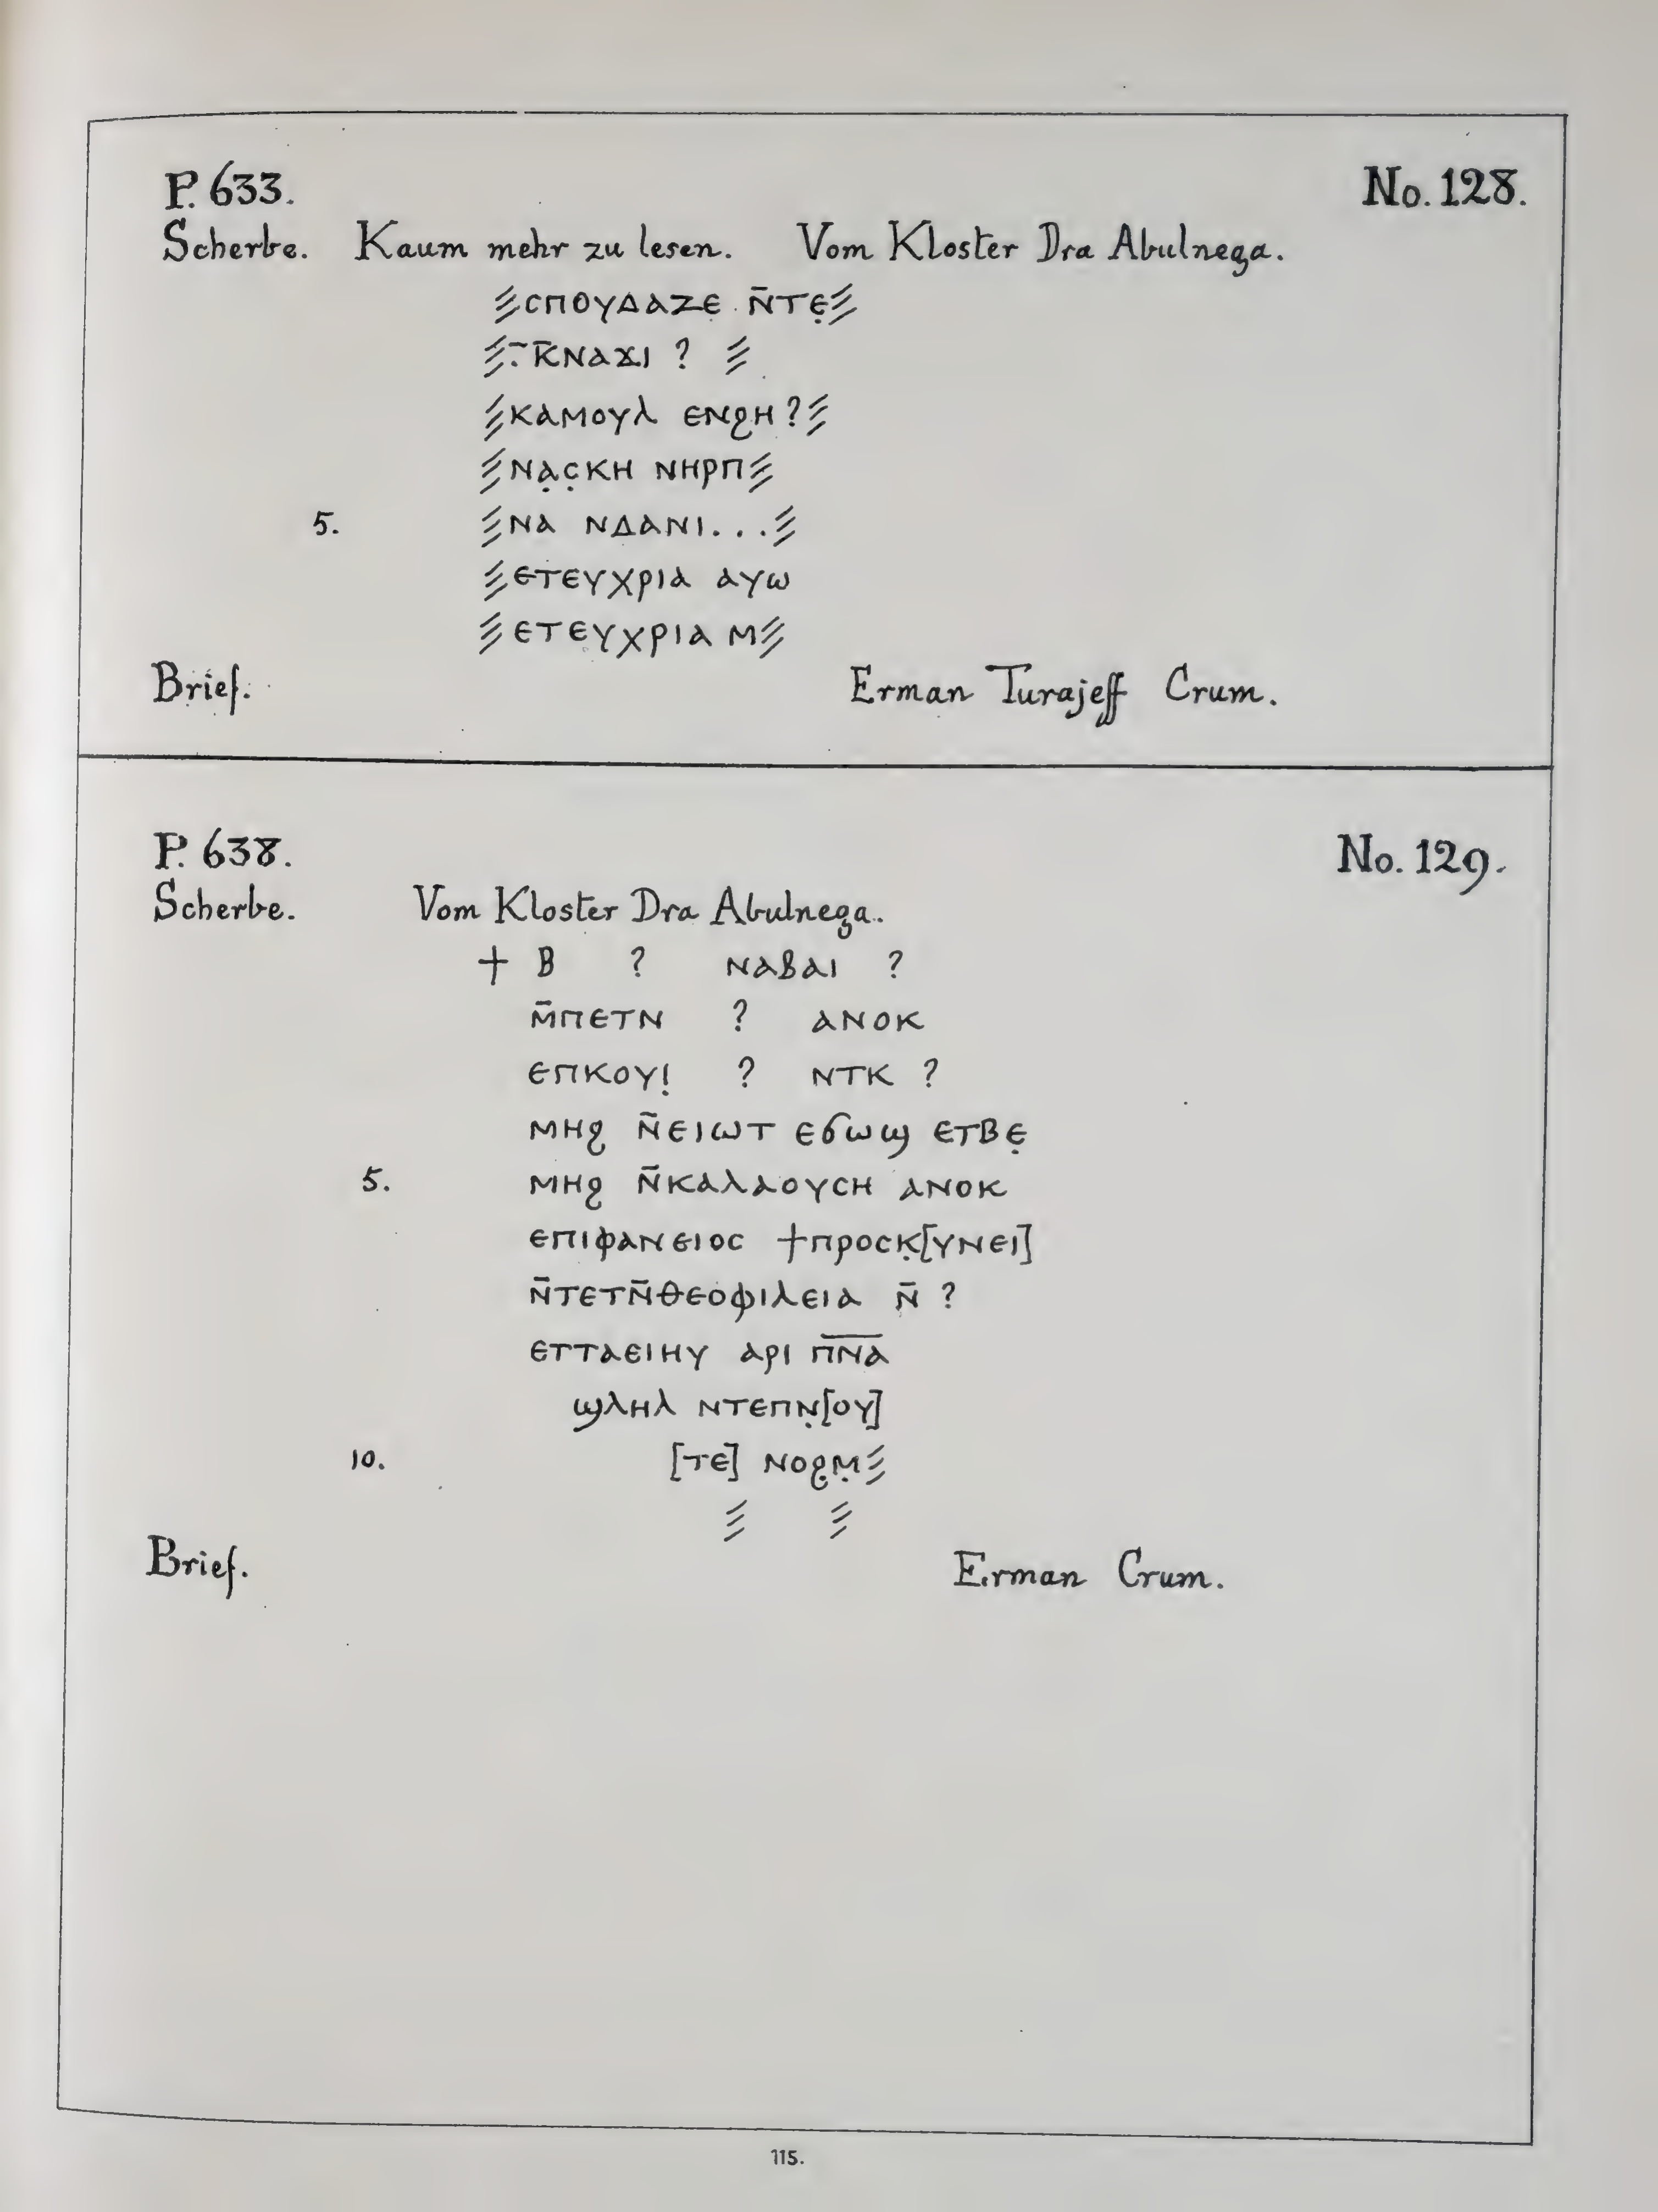 P. 633. No. 128.
Scherbe. Kaum mehr zu lesen. Vom Kloster Dra Abulnega.
⫽ⲥⲡⲟⲩⲇⲁⲍⲉ ⲛ̄ⲧⲉ̣⫽
⫽.̄ⲕ̄ⲛⲁϫⲓ ? ⫽
⫽ⲕⲁⲙⲟⲩⲗ ⲉⲛϩⲏ?⫽
⫽ⲛⲁ̣ⲥ̣ⲕⲏ ⲛⲏⲣⲡ⫽
5. ⫽ⲛⲁ ⲛⲇⲁⲛⲓ...⫽
⫽ⲉⲧⲉⲩⲭⲣⲓⲁ ⲁⲩⲱ
⫽ⲉⲧⲉⲩⲭⲣⲓⲁ ⲙ⫽
Brief. Erman Turajeff Crum.
P. 638. No. 129.
Scherbe. Vom Kloster Dra Abulnega.
+ ⲃ ? ⲛⲁⲃⲁⲓ ?
ⲙ̄ⲡⲉⲧⲛ ? ⲁⲛⲟⲕ
ⲉⲡⲕⲟⲩⲓ̣ ? ⲛⲧⲕ ?
ⲙⲏϩ ⲛ̄ⲉⲓⲱⲧ ⲉϭⲱϣ ⲉⲧⲃⲉ̣
5. ⲙⲏϩ ⲛ̄ⲕⲁⲗⲁⲟⲩⲥⲏ ⲁⲛⲟⲕ
ⲉⲡⲓⲫⲁⲛⲉⲓⲟⲥ ϯⲡⲣⲟⲥⲕ̣[ⲩⲛⲉⲓ]
ⲛ̄ⲧⲉⲧⲛ̄ⲑⲉⲟⲫⲓⲗⲉⲓⲁ ⲛ̄ ?
ⲉⲧⲧⲁⲉⲓⲏⲩ ⲁⲣⲓ ⲡ̅ⲛ̅ⲁ̅
ϣⲗⲏⲗ ⲛⲧⲉⲡⲛ̣[ⲟⲩ]
10. [ⲧⲉ] ⲛⲟϩ̣ⲙ̣⫽
⫽ ⫽
Brief. Erman Crum.
115.